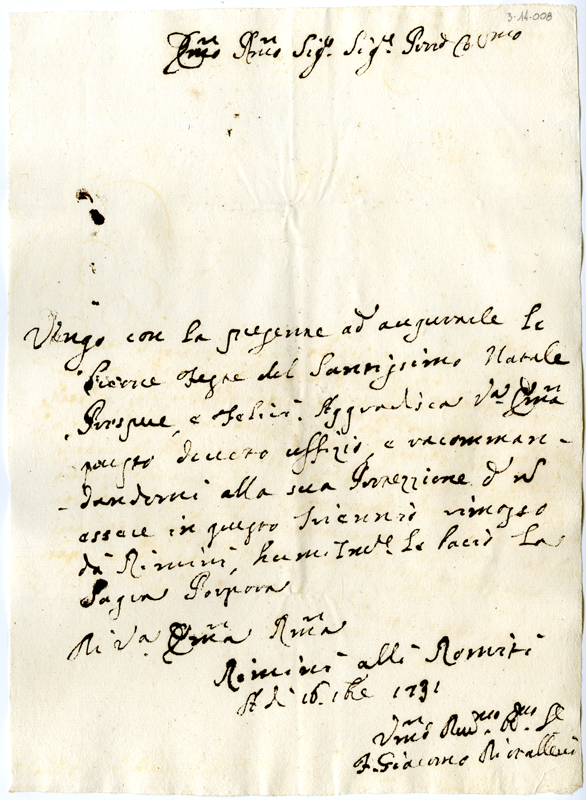 3-14-008
Em̃o Rm̃o Sig.r Sig.r Prõn Col.mo
Vengo con la presente ad augurarle le
Sacre Feste del Santissimo Natale
Prospere, e Felici. Aggradisca V.a Em̃a
questo devoto uffizio, e racomman-
dandomi alla sua Protezzione di nõ
essere in questo triennio rimosso
da Rimini, humilm.te le bacio la
Sagra Porpora
Di V.a Em̃a Rm̃a
Rimini alli Romiti
A dì 16. Xbre 1731
F. Giacomo